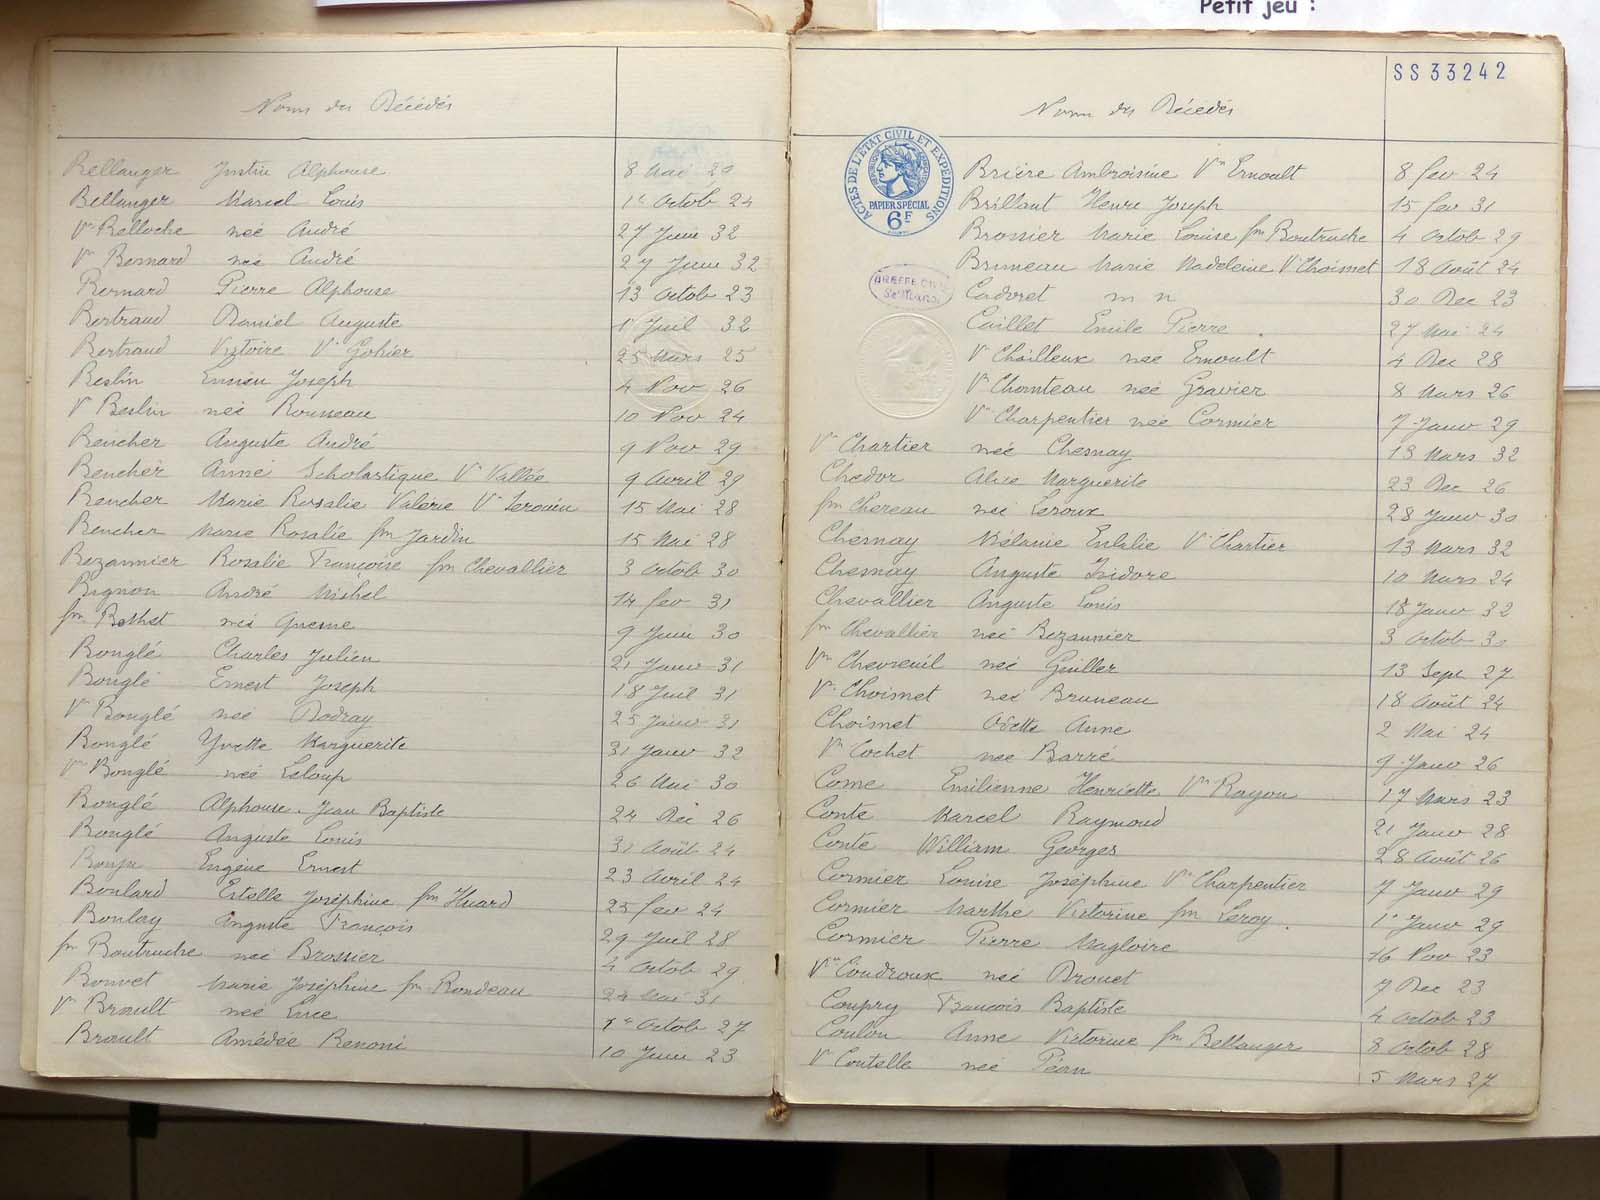 Petit jeu :
Noms des Décédés
Bellanger Justin Alphonse 8 Mai 29
Bellanger Marcel Louis 1er Octob 24
Vve Belloche née André 27 Juin 32
Vve Besnard née André 27 Juin 32
Bernard Pierre Alphonse 13 Octob 23
Bertrand Daniel Auguste 1r Juil 32
Bertrand Victoire Ve Gohier 25 Mars 25
Beslin Joseph 4 Nov 26
Ve Beslin née Rousseau 10 Nov 24
Beucher Auguste André 9 Nov 29
Beucher Anne Scholastique Ve Vallée 9 Avril 29
Beucher Marie Rosalie Valérie Ve 15 Mai 28
Beucher Marie Rosalie fme Jardin 15 Mai 28
Bezannier Rosalie Françoise fme Chevallier 3 Octob 30
Bignon André Michel 14 fev 31
fme née Quesne 9 Juin 30
Bouglé Charles Julien 21 Janv 31
Bouglé Ernest Joseph 18 Juil 31
Ve Bouglé née Dodray 25 Janv 31
Bouglé Yvette Marguerite 31 Janv 32
Vve Bouglé née Leloup 26 Mai 30
Bouglé Alphonse Jean Baptiste 24 Dec 26
Bouglé Auguste Louis 31 Août 24
Eugène Ernest 23 Avril 24
Boulard Estelle Joséphine fme Huard 25 fev 24
Boulay Auguste François 29 Juil 28
fme Boutruche née Brossier 4 Octob 29
Bouvet Marie Joséphine fme Rondeau 24 Mai 31
Ve Brault née Luce 1er Octob 27
Brault Amédée Benoni 10 Juin 23
SS 33242
Noms des Décédés
ACTES DE L'ÉTAT CIVIL ET EXPÉDITIONS
PAPIER SPÉCIAL
6F
GREFFE CIVIL
Brière Ambroisine Vve Ernoult 8 fev 24
Brillant Henri Joseph 15 fev 31
Brossier Marie Louise fme Boutruche 4 Octob 29
Bruneau Marie Madeleine Ve Choisnet 18 Août 24
Cadoret m n 30 Dec 23
Caillet Emile Pierre 27 Mai 24
Ve Chailleux née Ernoult 4 Dec 28
Ve Chanteau née Gravier 8 Mars 26
Vve Charpentier née Cormier 7 Janv 29
Ve Chartier née Chesnay 13 Mars 32
Chedor Alice Marguerite 23 Dec 26
fme Chereau née Leroux 28 Janv 30
Chesnay Mélanie Eulalie Ve Chartier 13 Mars 32
Chesnay Auguste Isidore 10 Mars 24
Chevallier Auguste Louis 18 Janv 32
fme Chevallier née Bezannier 3 Octob 30
Vve Chevreuil née Guiller 13 Sept 27
Ve Choisnet née Bruneau 18 Août 24
Choisnet Odette Anne 2 Mai 24
Vve Cochet née Barré 9 Janv 26
Come Emilienne Henriette Vve Rayon 17 Mars 23
Conte Marcel Raymond 21 Janv 28
Conte William Georges 28 Août 26
Cormier Louise Joséphine Vve Charpentier 7 Janv 29
Cormier Marthe Victorine fme Leroy 1r Janv 29
Cormier Pierre Magloire 16 Nov 23
Vve Coudroux née Drouet 7 Dec 23
Coupry François Baptiste 4 Octob 23
Coulon Anne Victorine fme Bellanger 8 Octob 28
Ve Coutelle née Péan 5 Mars 27